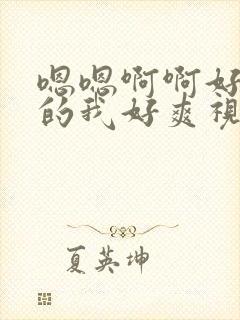 嗯嗯啊啊好
的我好爽视
夏英坤